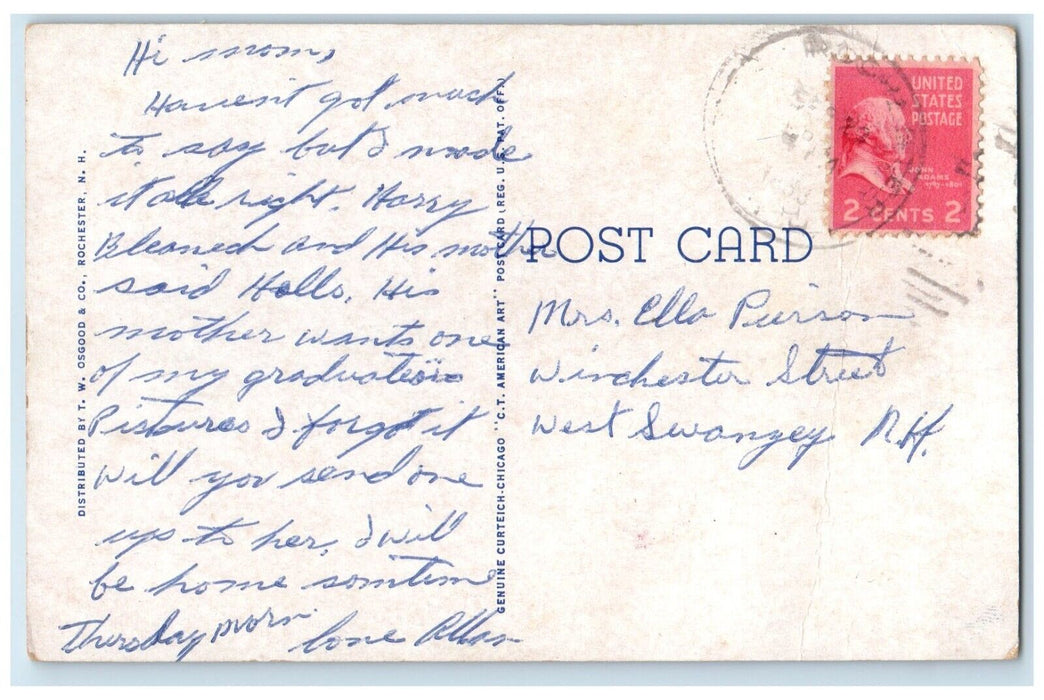 Hi mom,
Haven't got much
to say but I made
it all right. Harry
and His mother
said Hello. His
mother wants one
of my graduation
Pictures I forgot it
will you send one
up to her. I will
be home somtime
Thursday morn.
love Allan
DISTRIBUTED BY T. W. OSGOOD & CO., ROCHESTER, N. H.
GENUINE CURTEICH-CHICAGO "C.T. AMERICAN ART" POST CARD (REG. U.S. PAT. OFF.)
UNITED
STATES
POSTAGE
JOHN
ADAMS
1797-1801
2 CENTS 2
POST CARD
Mrs. Ella Pierson
Winchester Street
West Swanzey N.H.